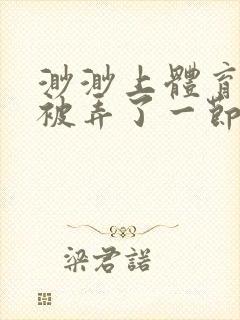 渺渺上體育
被弄了一節
梁君諾